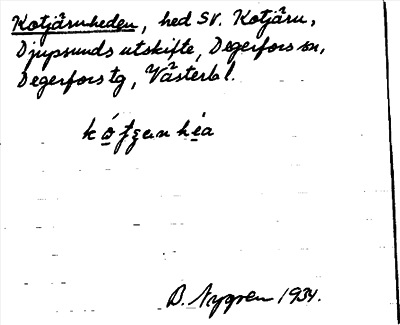 Kotjärnheden, hed SV. Kotjärn,
Djupsunds utskifte, Degerfors sn,
Degerfors tg, Västerb l.
B. Nygren 1934.